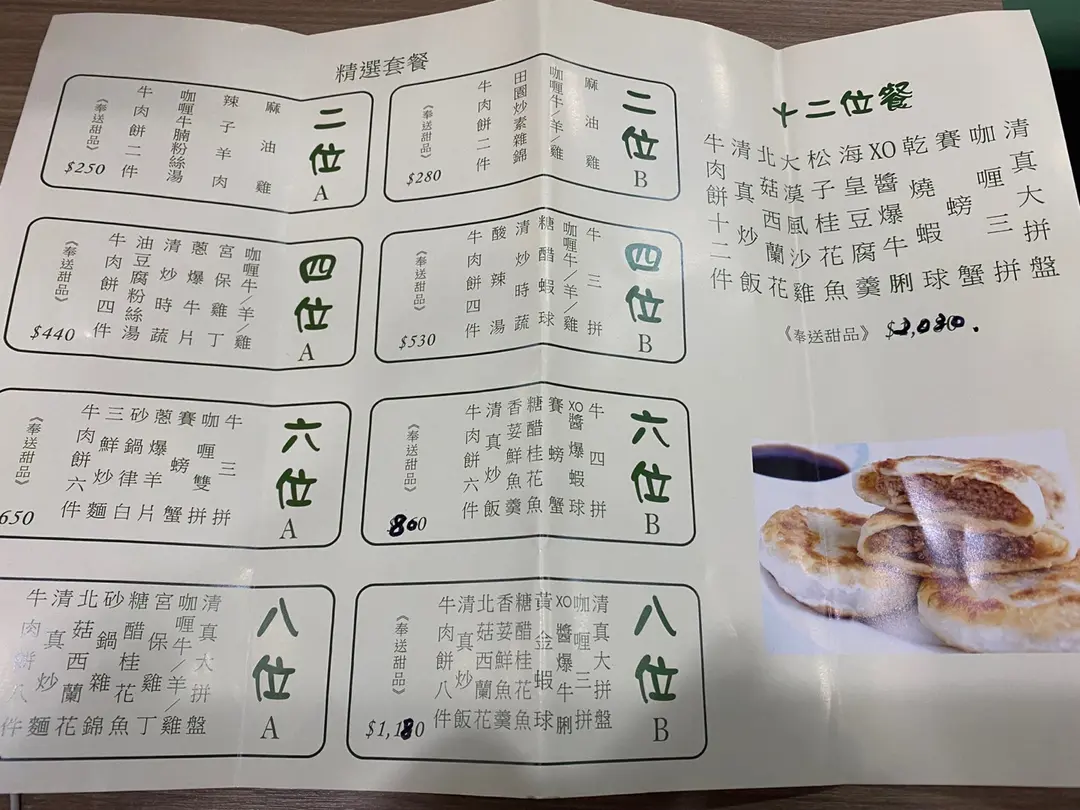 精選套餐
二位
A
麻油雞
辣子羊肉
咖喱牛腩粉絲湯
牛肉餅二件
《奉送甜品》
$250
二位
B
麻油雞
咖喱牛/羊/雞
田園炒素雜錦
牛肉餅二件
《奉送甜品》
$280
四位
A
咖喱牛/羊/雞
宮保雞丁
蔥爆牛片
清炒時蔬
油豆腐粉絲湯
牛肉餅四件
《奉送甜品》
$440
四位
B
牛三拼
咖喱牛/羊/雞
糖醋蝦球
清炒時蔬
酸辣湯
牛肉餅四件
《奉送甜品》
$530
六位
A
牛三拼
咖喱雙拼
賽螃蟹
蔥爆羊片
砂鍋律白
三鮮炒麵
牛肉餅六件
《奉送甜品》
650
六位
B
牛四拼
XO醬爆蝦球
賽螃蟹
糖醋桂花魚
香荽鮮魚羹
清真炒飯
牛肉餅六件
《奉送甜品》
八位
A
清真大拼盤
咖喱牛/羊/雞
宮保雞丁
糖醋桂花魚
砂鍋雜錦
北菇西蘭花
清真炒麵
牛肉餅八件
八位
B
清真大拼盤
咖喱三拼
XO醬爆牛脷
黃金蝦球
糖醋桂花魚
香荽鮮魚羹
北菇西蘭花
清真炒飯
牛肉餅八件
《奉送甜品》
$1,180
十二位餐
清真大拼盤
咖喱三拼
賽螃蟹
乾燒蝦球
XO醬爆牛脷
海皇豆腐羹
松子桂花魚
大漠風沙雞
北菇西蘭花
清真炒飯
牛肉餅十二件
《奉送甜品》